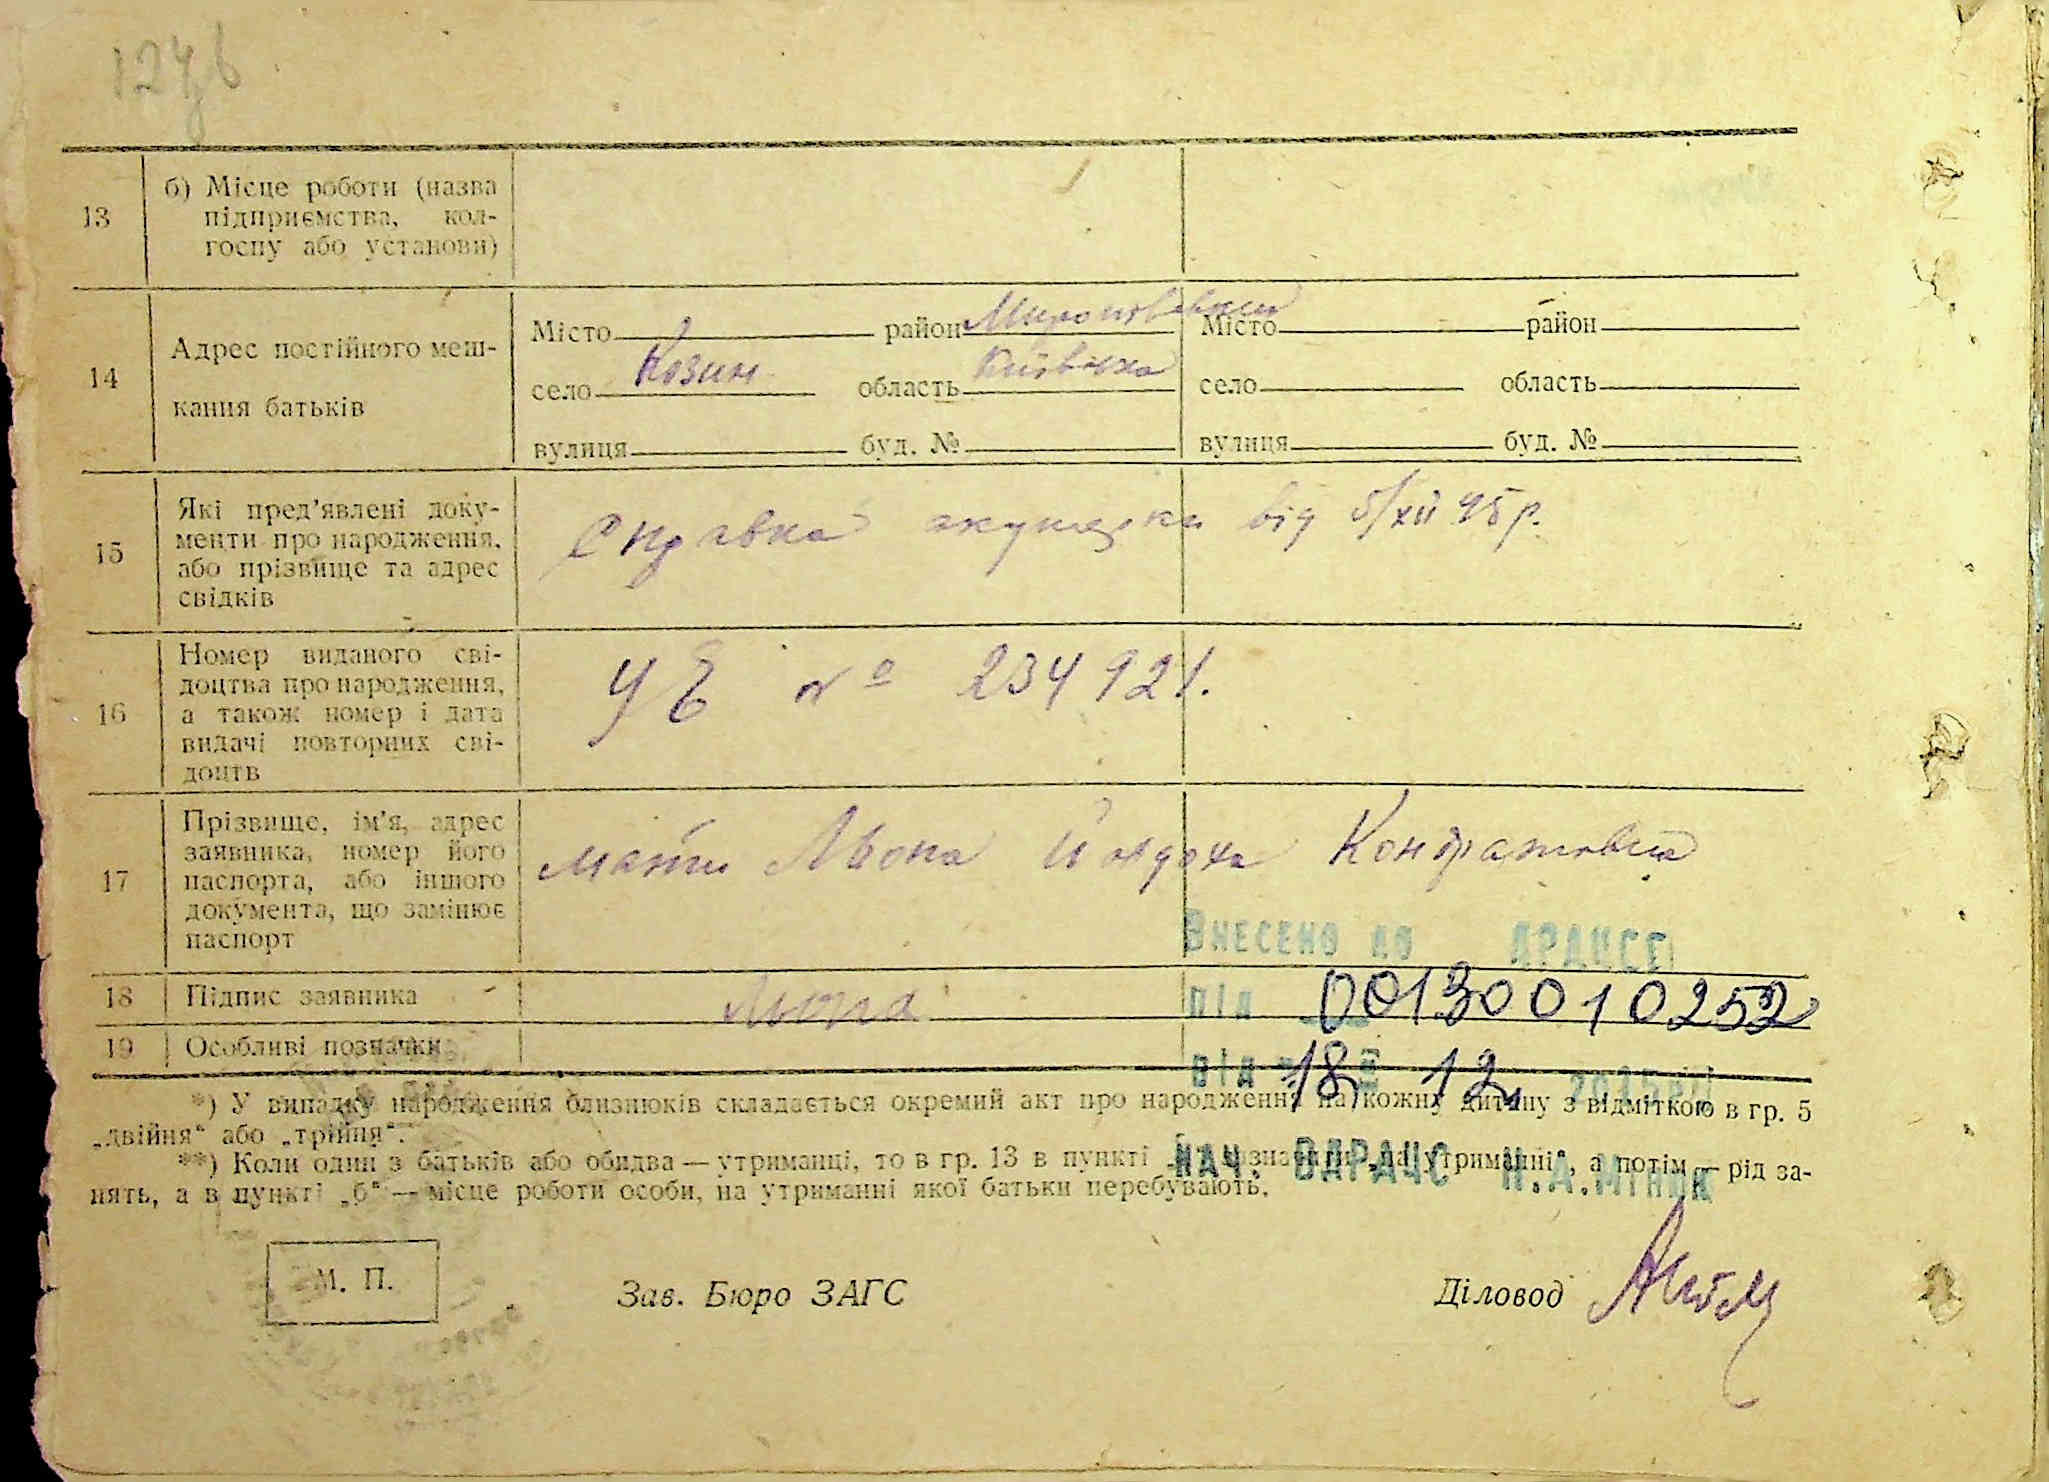 13
б) Місце роботи (назва
підприємства, кол-
госпу або установи)
14
Адрес постійного меш-
кання батьків
Місто район Миронівський
село Козин область Київська
вулиця буд. №
Місто район
село область
вулиця буд. №
15
Які пред'явлені доку-
менти про народження,
або прізвище та адрес
свідків
Справка акушерки від 5/XII 45 р.
16
Номер виданого сві-
доцтва про народження,
а також номер і дата
видачі повторних сві-
доцтв
УБ № 234921.
17
Прізвище, ім'я, адрес
заявника, номер його
паспорта, або іншого
документа, що замінює
паспорт
мати Кондратовна
Внесено до ДРАЦСГ
18
Підпис заявника
під 00130010252
19
Особливі позначки
від 18 12 2015
*) У випадку народження близнюків складається окремий акт про народження на кожну дитину з відміткою в гр. 5
„двійня" або „трійня".
**) Коли один з батьків або обидва — утриманці, то в гр. 13 в пункті утриманні", а потім — рід за-
нять, а в пункті „б" — місце роботи особи, на утриманні якої батьки перебувають.
Нач. ВДРАЦС Н.А.Міняк
М. П.
Зав. Бюро ЗАГС
Діловод